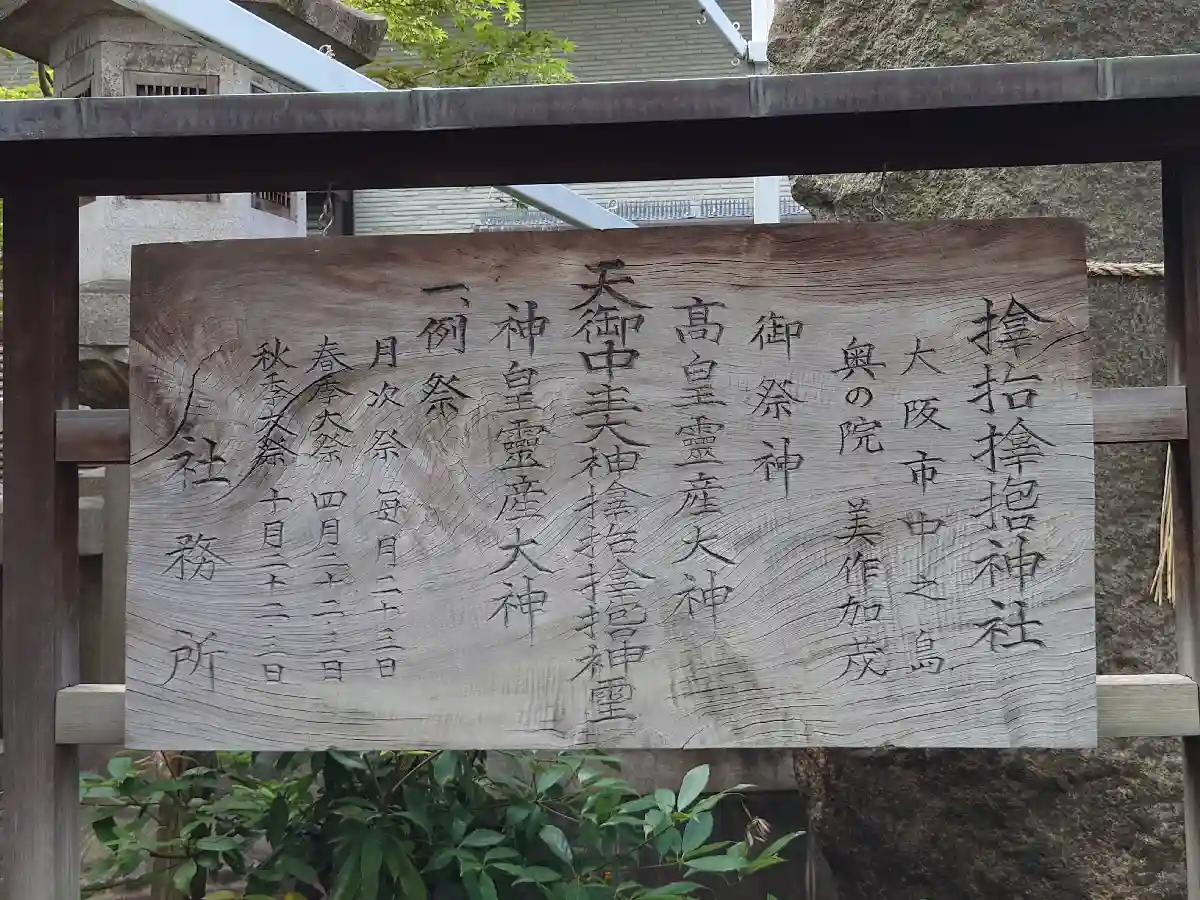 𪮷抬𪮷𪮇神社
大阪市中之島
奥の院 美作加茂
御祭神
高皇靈産大神
天御中主大神𪮷抬𪮷𪮇神霊
神皇靈産大神
一、例祭
月次祭 毎月二十三日
春季大祭 四月二十二三日
秋季大祭 十月二十二三日
社務所